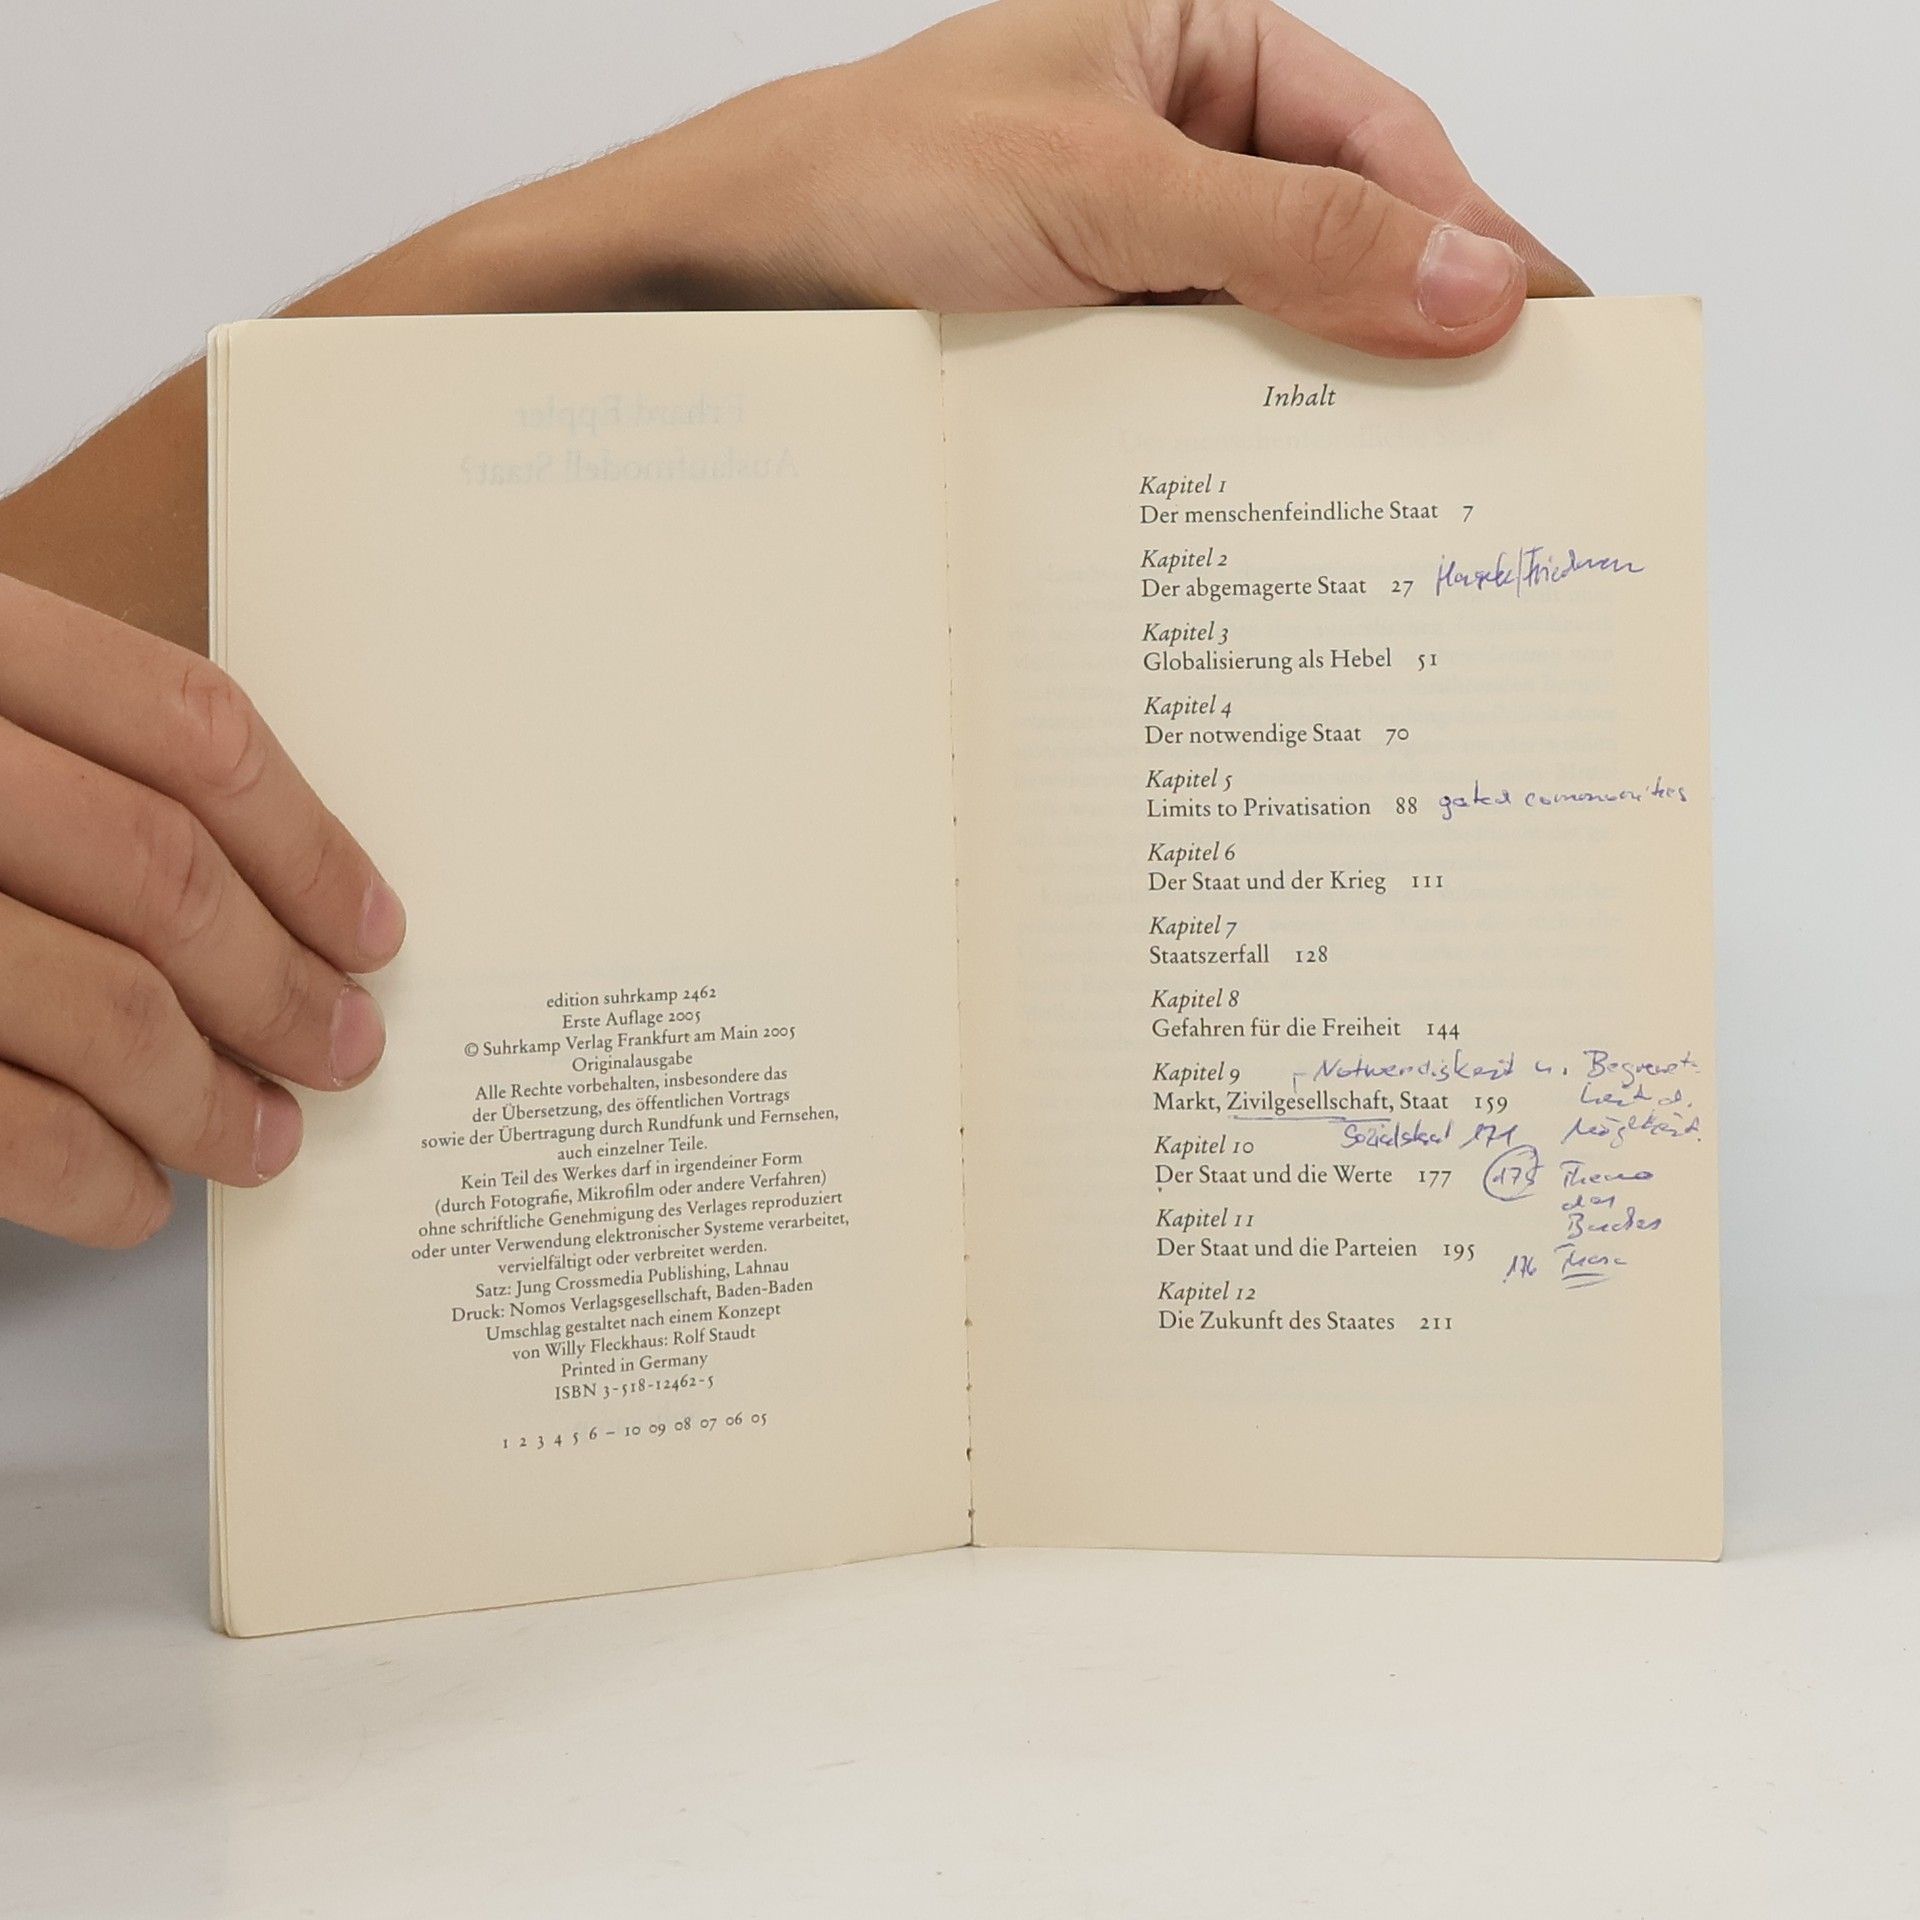 Erhard Eppler
Auslaufmodell Staat?
edition suhrkamp 2462
Erste Auflage 2005
© Suhrkamp Verlag Frankfurt am Main 2005
Originalausgabe
Alle Rechte vorbehalten, insbesondere das
der Übersetzung, des öffentlichen Vortrags
sowie der Übertragung durch Rundfunk und Fernsehen,
auch einzelner Teile.
Kein Teil des Werkes darf in irgendeiner Form
(durch Fotografie, Mikrofilm oder andere Verfahren)
ohne schriftliche Genehmigung des Verlages reproduziert
oder unter Verwendung elektronischer Systeme verarbeitet,
vervielfältigt oder verbreitet werden.
Satz: Jung Crossmedia Publishing, Lahnau
Druck: Nomos Verlagsgesellschaft, Baden-Baden
Umschlag gestaltet nach einem Konzept
von Willy Fleckhaus: Rolf Staudt
Printed in Germany
ISBN 3-518-12462-5
1 2 3 4 5 6 – 10 09 08 07 06 05
Inhalt
Kapitel 1
Der menschenfeindliche Staat 7
Kapitel 2
Der abgemagerte Staat 27
Kapitel 3
Globalisierung als Hebel 51
Kapitel 4
Der notwendige Staat 70
Kapitel 5
Limits to Privatisation 88 gated communities
Kapitel 6
Der Staat und der Krieg 111
Kapitel 7
Staatszerfall 128
Kapitel 8
Gefahren für die Freiheit 144
Kapitel 9 Notwendigkeit u. Begrenzt-
Markt, Zivilgesellschaft, Staat 159 heit d.
Sozialstaat 171 Möglichkeit.
Kapitel 10
Der Staat und die Werte 177 175 Thema
des
Kapitel 11 Buches
Der Staat und die Parteien 195
176 These
Kapitel 12
Die Zukunft des Staates 211